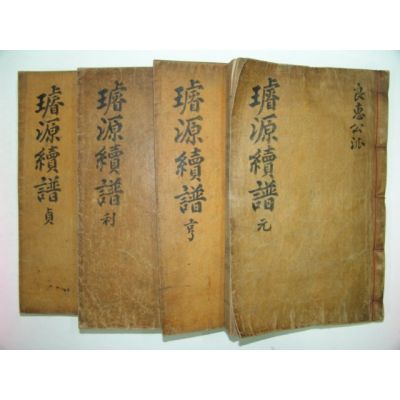 良惠公派
璿源續譜 元
璿源續譜 亨
璿源續譜 利
璿源續譜 貞